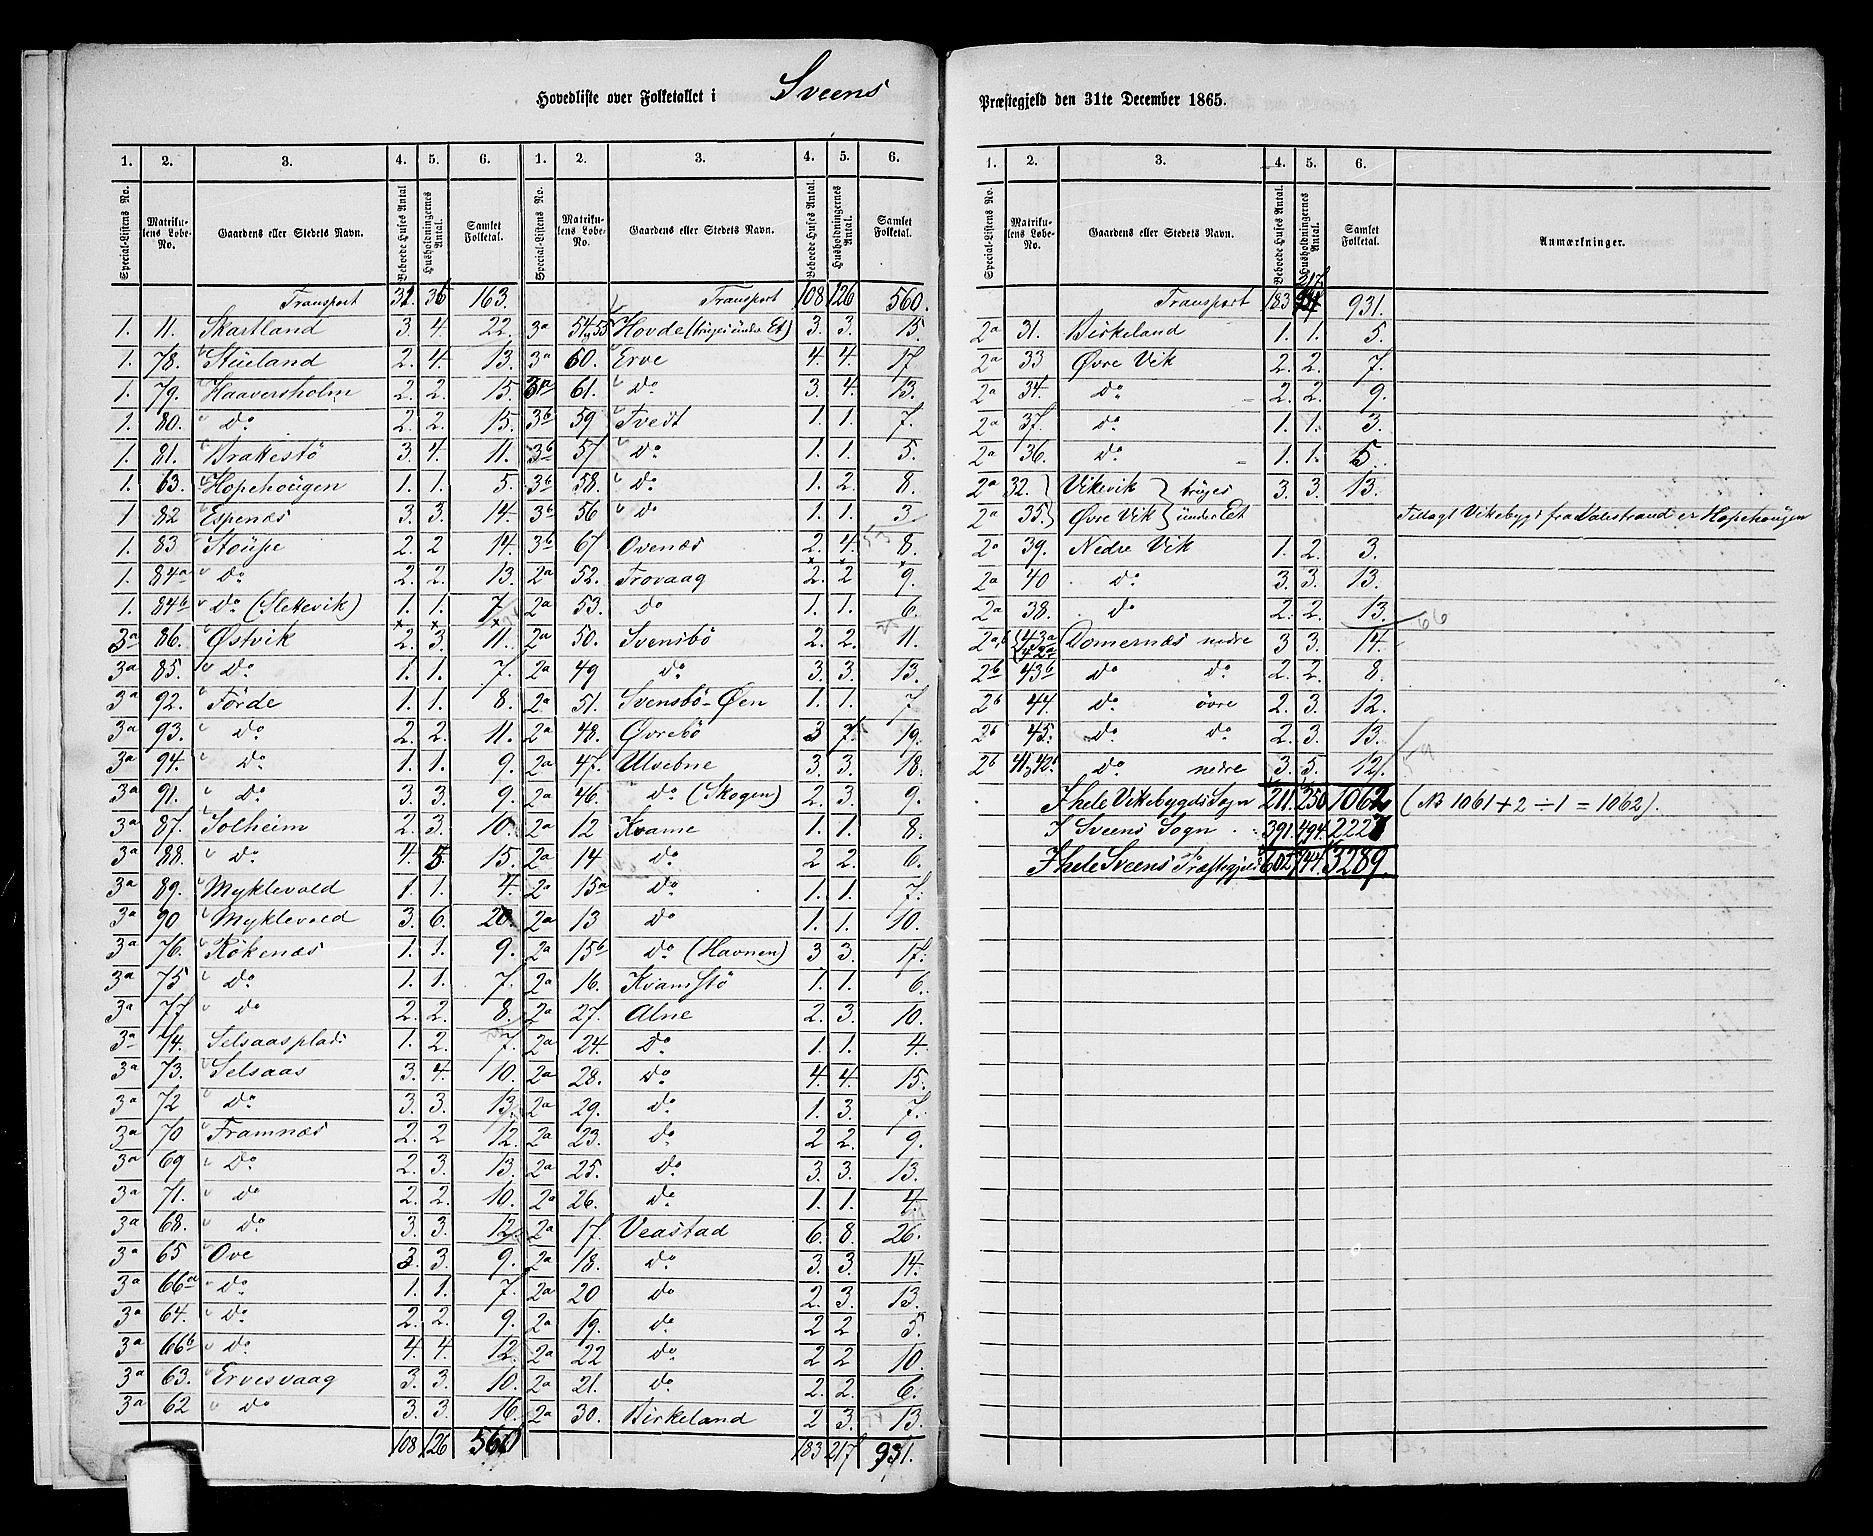 Hovedliste over Folketallet i Sveens
1. 2. 3. 4. 5. 6.
Special-Listens No. Matrikulens Løbe-No. Gaardens eller Stedets Navn. Beboede Huses Antal Husholdningernes Antal. Samlet Folketal.
Transport 32. 36 163.
1. 11. Skartland 3. 4. 22.
1. 78. Stueland 2. 4. 13.
1. 79. Haaversholm 2. 2. 15.
1. 80. Do 2. 2. 15.
1. 81. Brattestö 3. 4. 11.
1. 63. Hopehougen 1. 1. 5.
1 82 Espenæs 3. 3. 14.
1. 83 Stoupe 2. 2 14.
1. 84a Do 2. 2. 13.
1. 84b Do (Slettevik) 1. 1. 7.
3a 86. Østvik 2. 3. 11.
3a 85. Do 1. 1. 7.
3a 92. Förde 1. 1. 8.
3a 93. Do 2. 2. 11.
3a 94. Do 1. 1. 9.
3a 91. Do 3. 3. 9.
3a 87. Solheim 2. 3. 10.
3a 88. Do 4. 5. 15.
3a 89. Myklevold 1. 1. 4.
3a 90 Myklevold 3. 6. 20.
3a 76. Rökenæs 1. 1. 9.
3a 75 Do 1. 1. 7.
3a 77 Do 2. 2. 8.
3a 74. Selsaasplads 1. 2. 7.
3a 73. Selsaas 3. 4. 10.
3a 72 Do 3. 3. 13.
3a 70 Framnæs 2. 2 12.
3a 69 Do 2. 3. 13.
3a 71. Do 2. 2. 10.
3a 68. Do 3. 3. 12.
3a 65 Ove 3. 3. 9.
3a 66a Do 1. 1. 7.
3a 64. Do 2. 2. 9.
3a 66b Do 4. 4. 12.
3a 63. Ervesvaag 3. 3. 10.
3a 62 Do 3. 3. 16.
108 126 560
1. 2. 3. 4. 5. 6.
Special-Listens No. Matrikulens Løbe-No. Gaardens eller Stedets Navn. Beboede Huses Antal. Husholdningernes Antal. Samlet Folketal.
Transport 108 126 560.
3a 54.55 Hovde (bruges under Et) 3. 3. 15.
3a 60. Erve 4. 4. 17
3a 61. Do 3. 4. 13.
3b 59 Tvedt 1. 1. 7.
3b 57 Do 1. 1. 5.
3b 58. Do 1. 2. 8.
3b 56 Do 1. 1. 3
3b 67 Ovenæs 2. 4. 8.
2a 52. Trovaag 2. 2 9.
2a 53. Do 1. 1. 6.
2a 50. Svensbö 2. 2. 11.
2a 49 Do 3. 3. 13.
2a 51. Svensbö-Øen 1. 1. 7
2a 48. Øvrebö 3 7. 19.
2a 47. Ulvebne 3. 3. 18.
2a 46. Do (Skogen) 2. 3. 9.
2a 12 Kvame 1. 1. 8.
2a 14 Do 2 2. 6.
2a 15a Do 1. 1. 7.
2a 13 Do 1. 1. 10.
2a 15b Do (Havnen) 3 3. 17.
2a 16. Kvamstö 1. 1. 6.
2a 27. Alne 2. 3. 10.
2a 24. Do 1. 1. 4.
2a 28. Do 4. 4. 15.
2a 29. Do 1. 3. 7.
2a 23. Do 2 2. 9.
2a 25. Do 3. 3. 13.
2a 26. Do 1. 1. 4.
2a 17. Veastad 6. 8. 26.
2a 18. Do 3. 3. 14.
2a 20 Do 2. 3. 13.
2a 19. Do 2 2 5.
2a 22 Do 2 2 10.
2a 21. Do 2. 2. 6.
2a 30. Birkeland 2 3. 13.
183 217 931.
Præstegjeld den 31te December 1865.
1. 2. 3. 4. 5. 6.
Special-Listens No. Matrikulens Løbe-No. Gaardens eller Stedets Navn. Beboede Huses Antal. Husholdningernes Antal. Samlet Folketal. Anmærkninger.
Transport 183 217 931.
2a 31. Birkeland 1. 1. 5.
2a 33 Øvre Vik 2. 2. 7.
2a 34. Do 2. 2. 9.
2a 37. Do 1. 1 3.
2a 36. Do 1. 1. 5.
2a 32. Vikevik } bruges 3. 3. 13.
2a 35. Øvre Vik } under Et Tillagt Vikebygd fra Valestrand er Hopehougen
2a 39. Nedre Vik 1. 2. 3.
2a 40 Do 3. 3. 13.
2a 38. Do 2. 2. 13.
66
2a 43a 42a Domernæs nedre 3 3. 14.
2b 43b Do Do 2. 2. 8.
2b 44. Do övre 2. 3. 12.
2b 45. Do Do 2. 3. 13.
2b 41,42b Do nedre 3. 5. 12.
59
I hele Vikebygds Sogn 211. 250 1062 (NB 1061 + 2 ÷ 1 = 1062).
I Sveens Sogn 391. 494. 2227
I hele Sveens Præstegjeld 602 744. 3289.